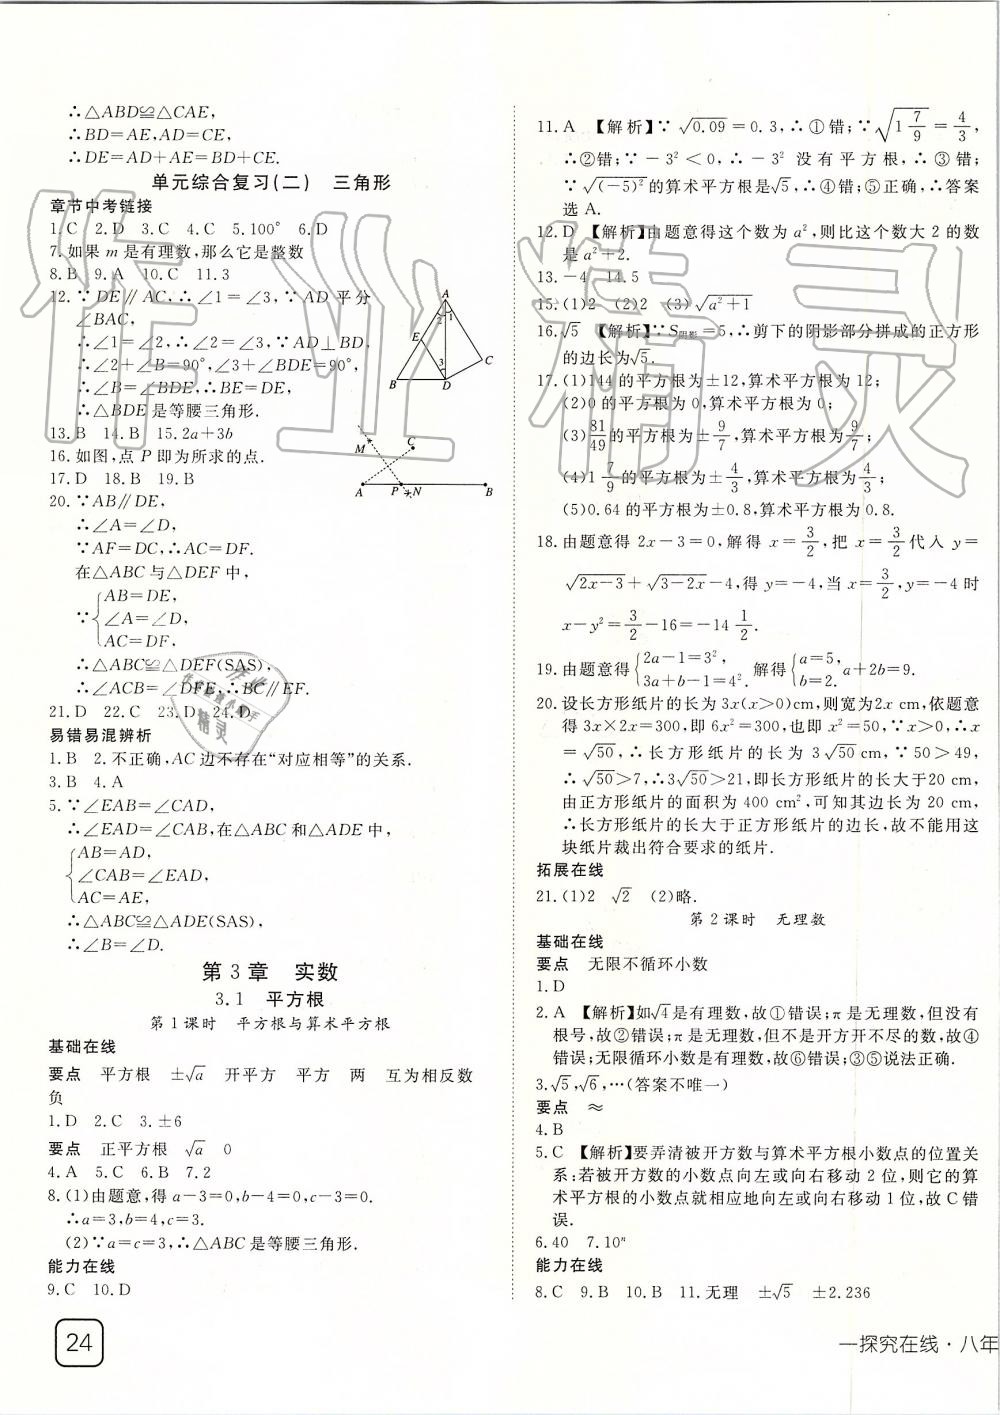 ∴△ABD≌△CAE,
∴BD=AE,AD=CE,
∴DE=AD+AE=BD+CE.
单元综合复习(二) 三角形
章节中考链接
1.C 2.D 3.C 4.C 5.100° 6.D
7.如果m是有理数,那么它是整数
8.B 9.A 10.C 11.3
12.∵DE∥AC,∴∠1=∠3,∵AD平分
∠BAC,
∴∠1=∠2,∴∠2=∠3,∵AD⊥BD,
∴∠2+∠B=90°,∠3+∠BDE=90°,
∴∠B=∠BDE,∴BE=DE,
∴△BDE是等腰三角形.
13.B 14.B 15.2a+3b
16.如图,点P即为所求的点.
17.D 18.B 19.B
20.∵AB∥DE,
∴∠A=∠D,
∵AF=DC,∴AC=DF.
在△ABC与△DEF中,
∵{AB=DE,
∠A=∠D,
AC=DF,
∴△ABC≌△DEF(SAS),
∴∠ACB=∠DFE,∴BC∥EF.
21.D 22.C 23.D 24.D
易错易混辨析
1.B 2.不正确,AC边不存在“对应相等”的关系.
3.B 4.A
5.∵∠EAB=∠CAD,
∴∠EAD=∠CAB,在△ABC和△ADE中,
{AB=AD,
∠CAB=∠EAD,
AC=AE,
∴△ABC≌△ADE(SAS),
∴∠B=∠D.
第3章 实数
3.1 平方根
第1课时 平方根与算术平方根
基础在线
要点 平方根 ±√a 开平方 平方 两 互为相反数
负
1.D 2.C 3.±6
要点 正平方根 √a 0
4.A 5.C 6.B 7.2
8.(1)由题意,得a-3=0,b-4=0,c-3=0.
∴a=3,b=4,c=3.
(2)∵a=c=3,∴△ABC是等腰三角形.
能力在线
9.C 10.D
24
A
1
2
E
3
C
B
D
M
C
A
P
N
B
11.A 【解析】∵√0.09=0.3,∴①错;∵√(1 7/9)=4/3,
∴②错;∵-3²<0,∴-3²没有平方根,∴③错;
∵√(-5)²的算术平方根是√5,∴④错;⑤正确,∴答案
选A.
12.D 【解析】由题意得这个数为a²,则比这个数大2的数
是a²+2.
13.-4 14.5
15.(1)2 (2)2 (3)√(a²+1)
16.√5 【解析】∵S阴影=5,∴剪下的阴影部分拼成的正方形
的边长为√5.
17.(1)144的平方根为±12,算术平方根为12;
(2)0的平方根为0,算术平方根为0;
(3)81/49的平方根为±9/7,算术平方根为9/7;
(4)1 7/9的平方根为±4/3,算术平方根为4/3;
(5)0.64的平方根为±0.8,算术平方根为0.8.
18.由题意得2x-3=0,解得x=3/2,把x=3/2代入y=
√(2x-3)+√(3-2x)-4,得y=-4,当x=3/2,y=-4时
x-y²=3/2-16=-14 1/2.
19.由题意得{2a-1=3², 3a+b-1=4². 解得{a=5, b=2. a+2b=9.
20.设长方形纸片的长为3x(x>0)cm,则宽为2x cm,依题意
得3x×2x=300,即6x²=300,也即x²=50,∵x>0,∴x
=√50,∴长方形纸片的长为3√50 cm,∵50>49,
∴√50>7,∴3√50>21,即长方形纸片的长大于20 cm,
由正方形纸片的面积为400 cm²,可知其边长为20 cm,
∴长方形纸片的长大于正方形纸片的边长,故不能用这
块纸片裁出符合要求的纸片.
拓展在线
21.(1)2 √2 (2)略.
第2课时 无理数
基础在线
要点 无限不循环小数
1.D
2.A 【解析】如√4是有理数,故①错误;π是无理数,但没有
根号,故②错误;π是无理数,但不是开方开不尽的数,故④
错误;无限循环小数是有理数,故⑥错误;③⑤说法正确.
3.√5,√6,…(答案不唯一)
要点 ≈
4.B
5.C 【解析】要弄清被开方数与算术平方根小数点的位置关
系;若被开方数的小数点向左或向右移动2位,则它的算
术平方根的小数点就相应地向左或向右移动1位,故C错
误.
6.40 7.10ⁿ
能力在线
8.C 9.B 10.B 11.无理 ±√5 ±2.236
一探究在线·八年
作业精灵
精灵